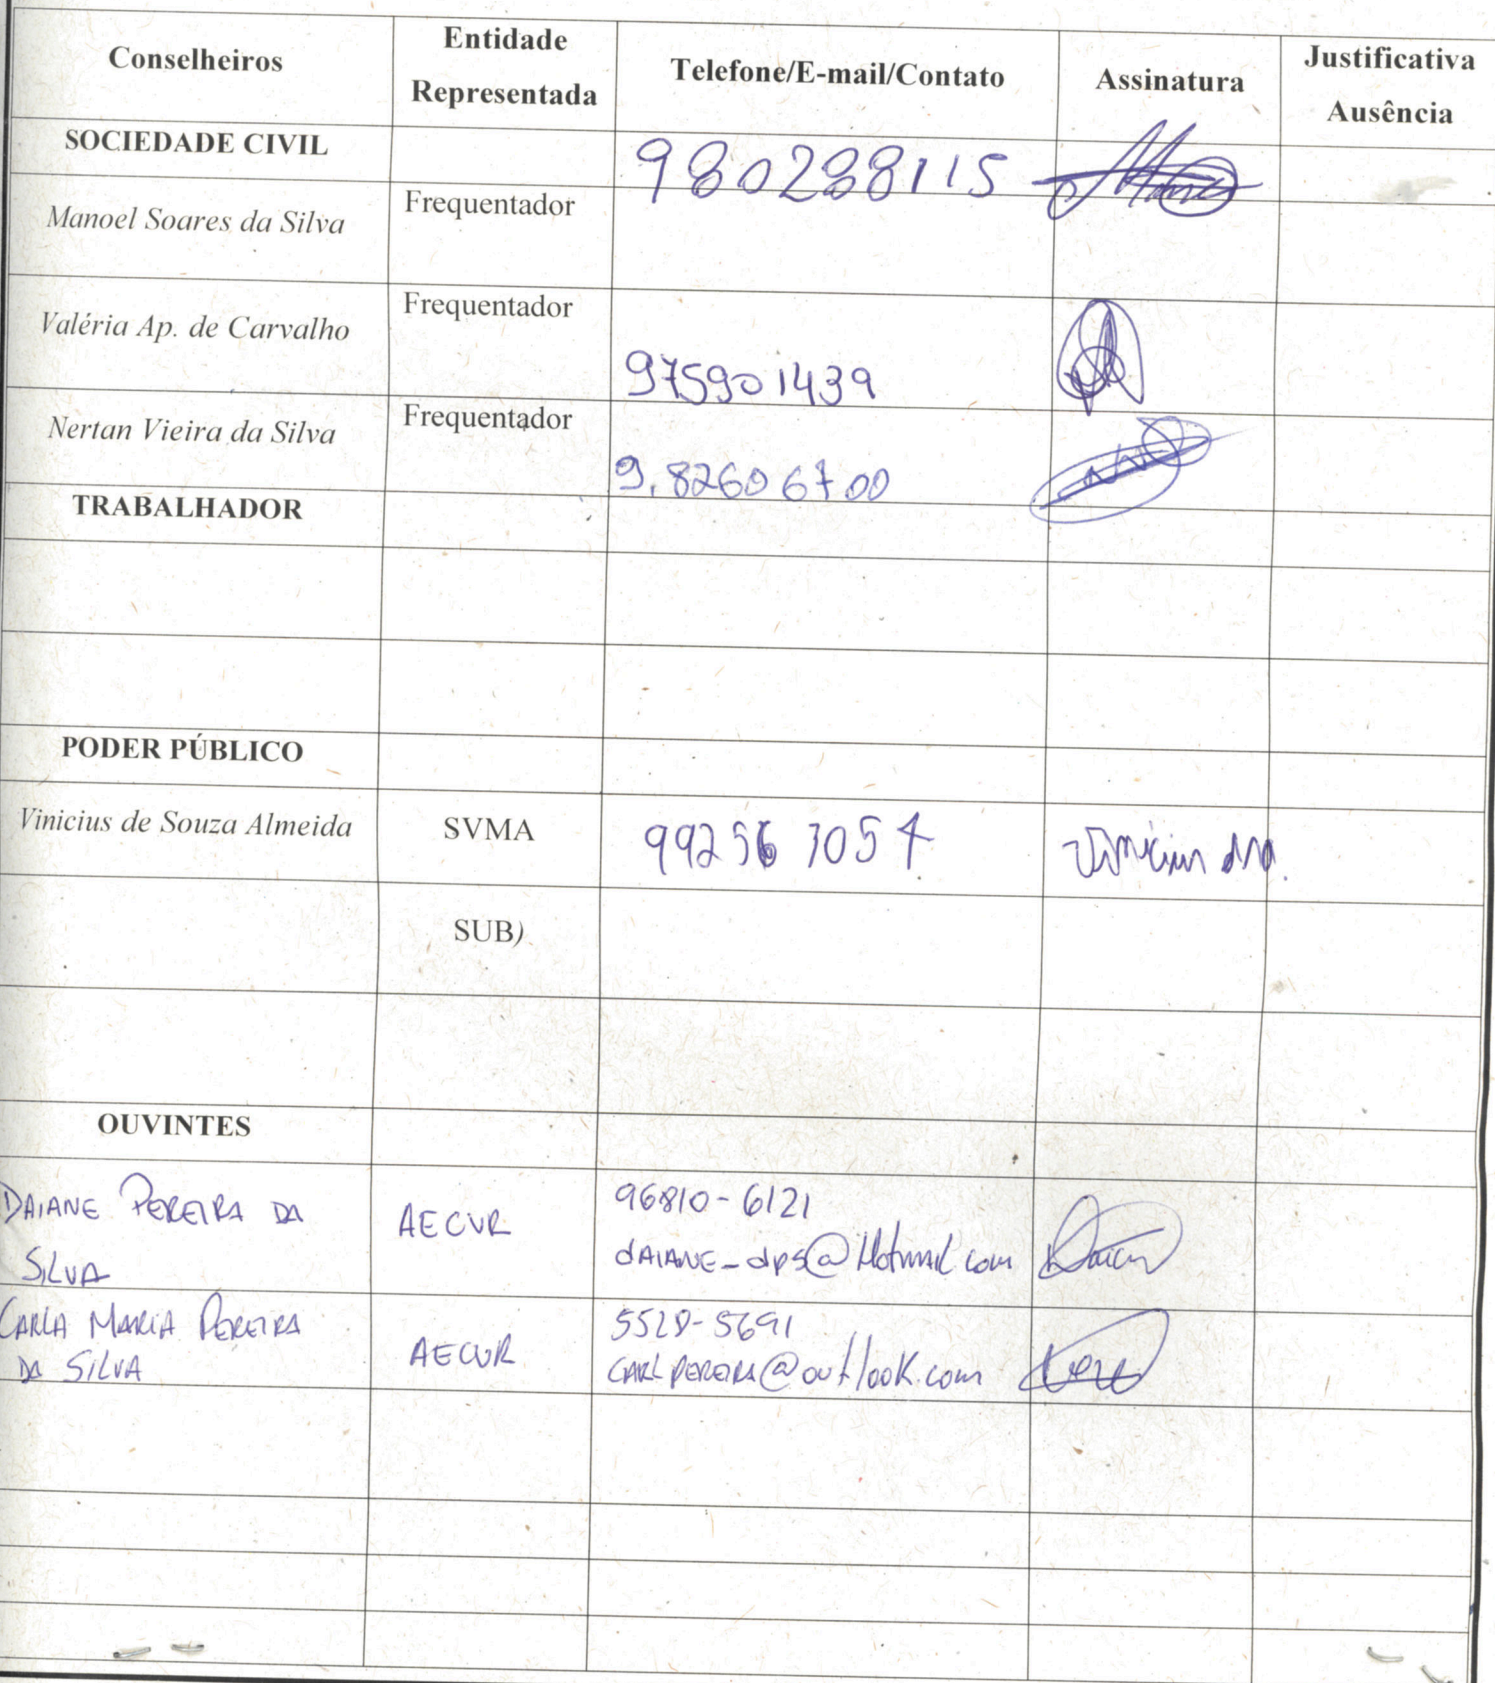 Conselheiros
Entidade
Representada
Telefone/E-mail/Contato
Assinatura
Justificativa
Ausência
SOCIEDADE CIVIL
980288115
Manoel Soares da Silva
Frequentador
Valéria Ap. de Carvalho
Frequentador
975901439
Nertan Vieira da Silva
Frequentador
9.82606700
TRABALHADOR
PODER PÚBLICO
Vinicius de Souza Almeida
SVMA
SUB)
OUVINTES
DAIANE PEREIRA DA
SILVA
AECVR
96810-6121
dAIANE_dps@Hotmail com
CARLA MARIA PEREIRA
DA SILVA
AECVR
CARLPEREIRA@outlook.com